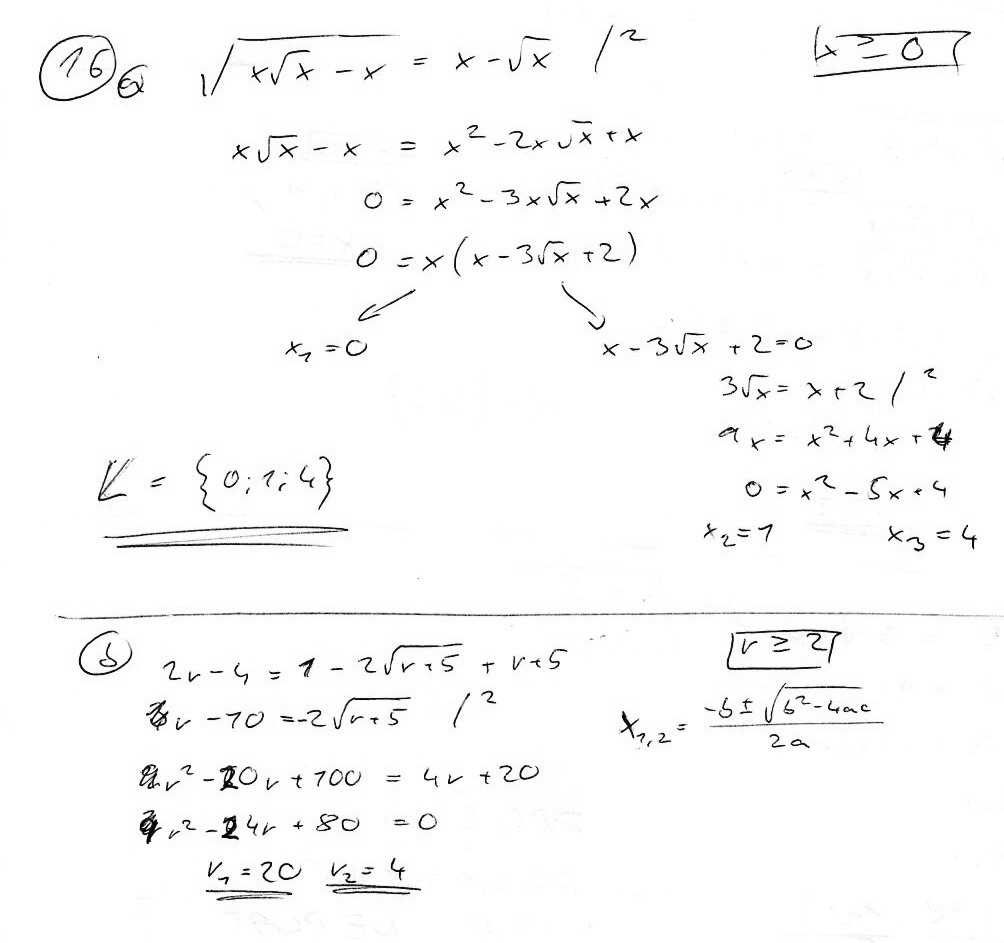 16 a √(x√x - x) = x - √x /² x ≥ 0
x√x - x = x² - 2x√x + x
0 = x² - 3x√x + 2x
0 = x(x - 3√x + 2)
x₁ = 0 x - 3√x + 2 = 0
3√x = x + 2 /²
9x = x² + 4x + 4
K = {0; 1; 4}
0 = x² - 5x + 4
x₂ = 1 x₃ = 4
b 2r - 4 = 1 - 2√(r+5) + r + 5 r ≥ 2
r - 10 = -2√(r+5) /² x₁,₂ = (-b ± √(b² - 4ac))/2a
r² - 20r + 100 = 4r + 20
r² - 24r + 80 = 0
r₁ = 20 r₂ = 4